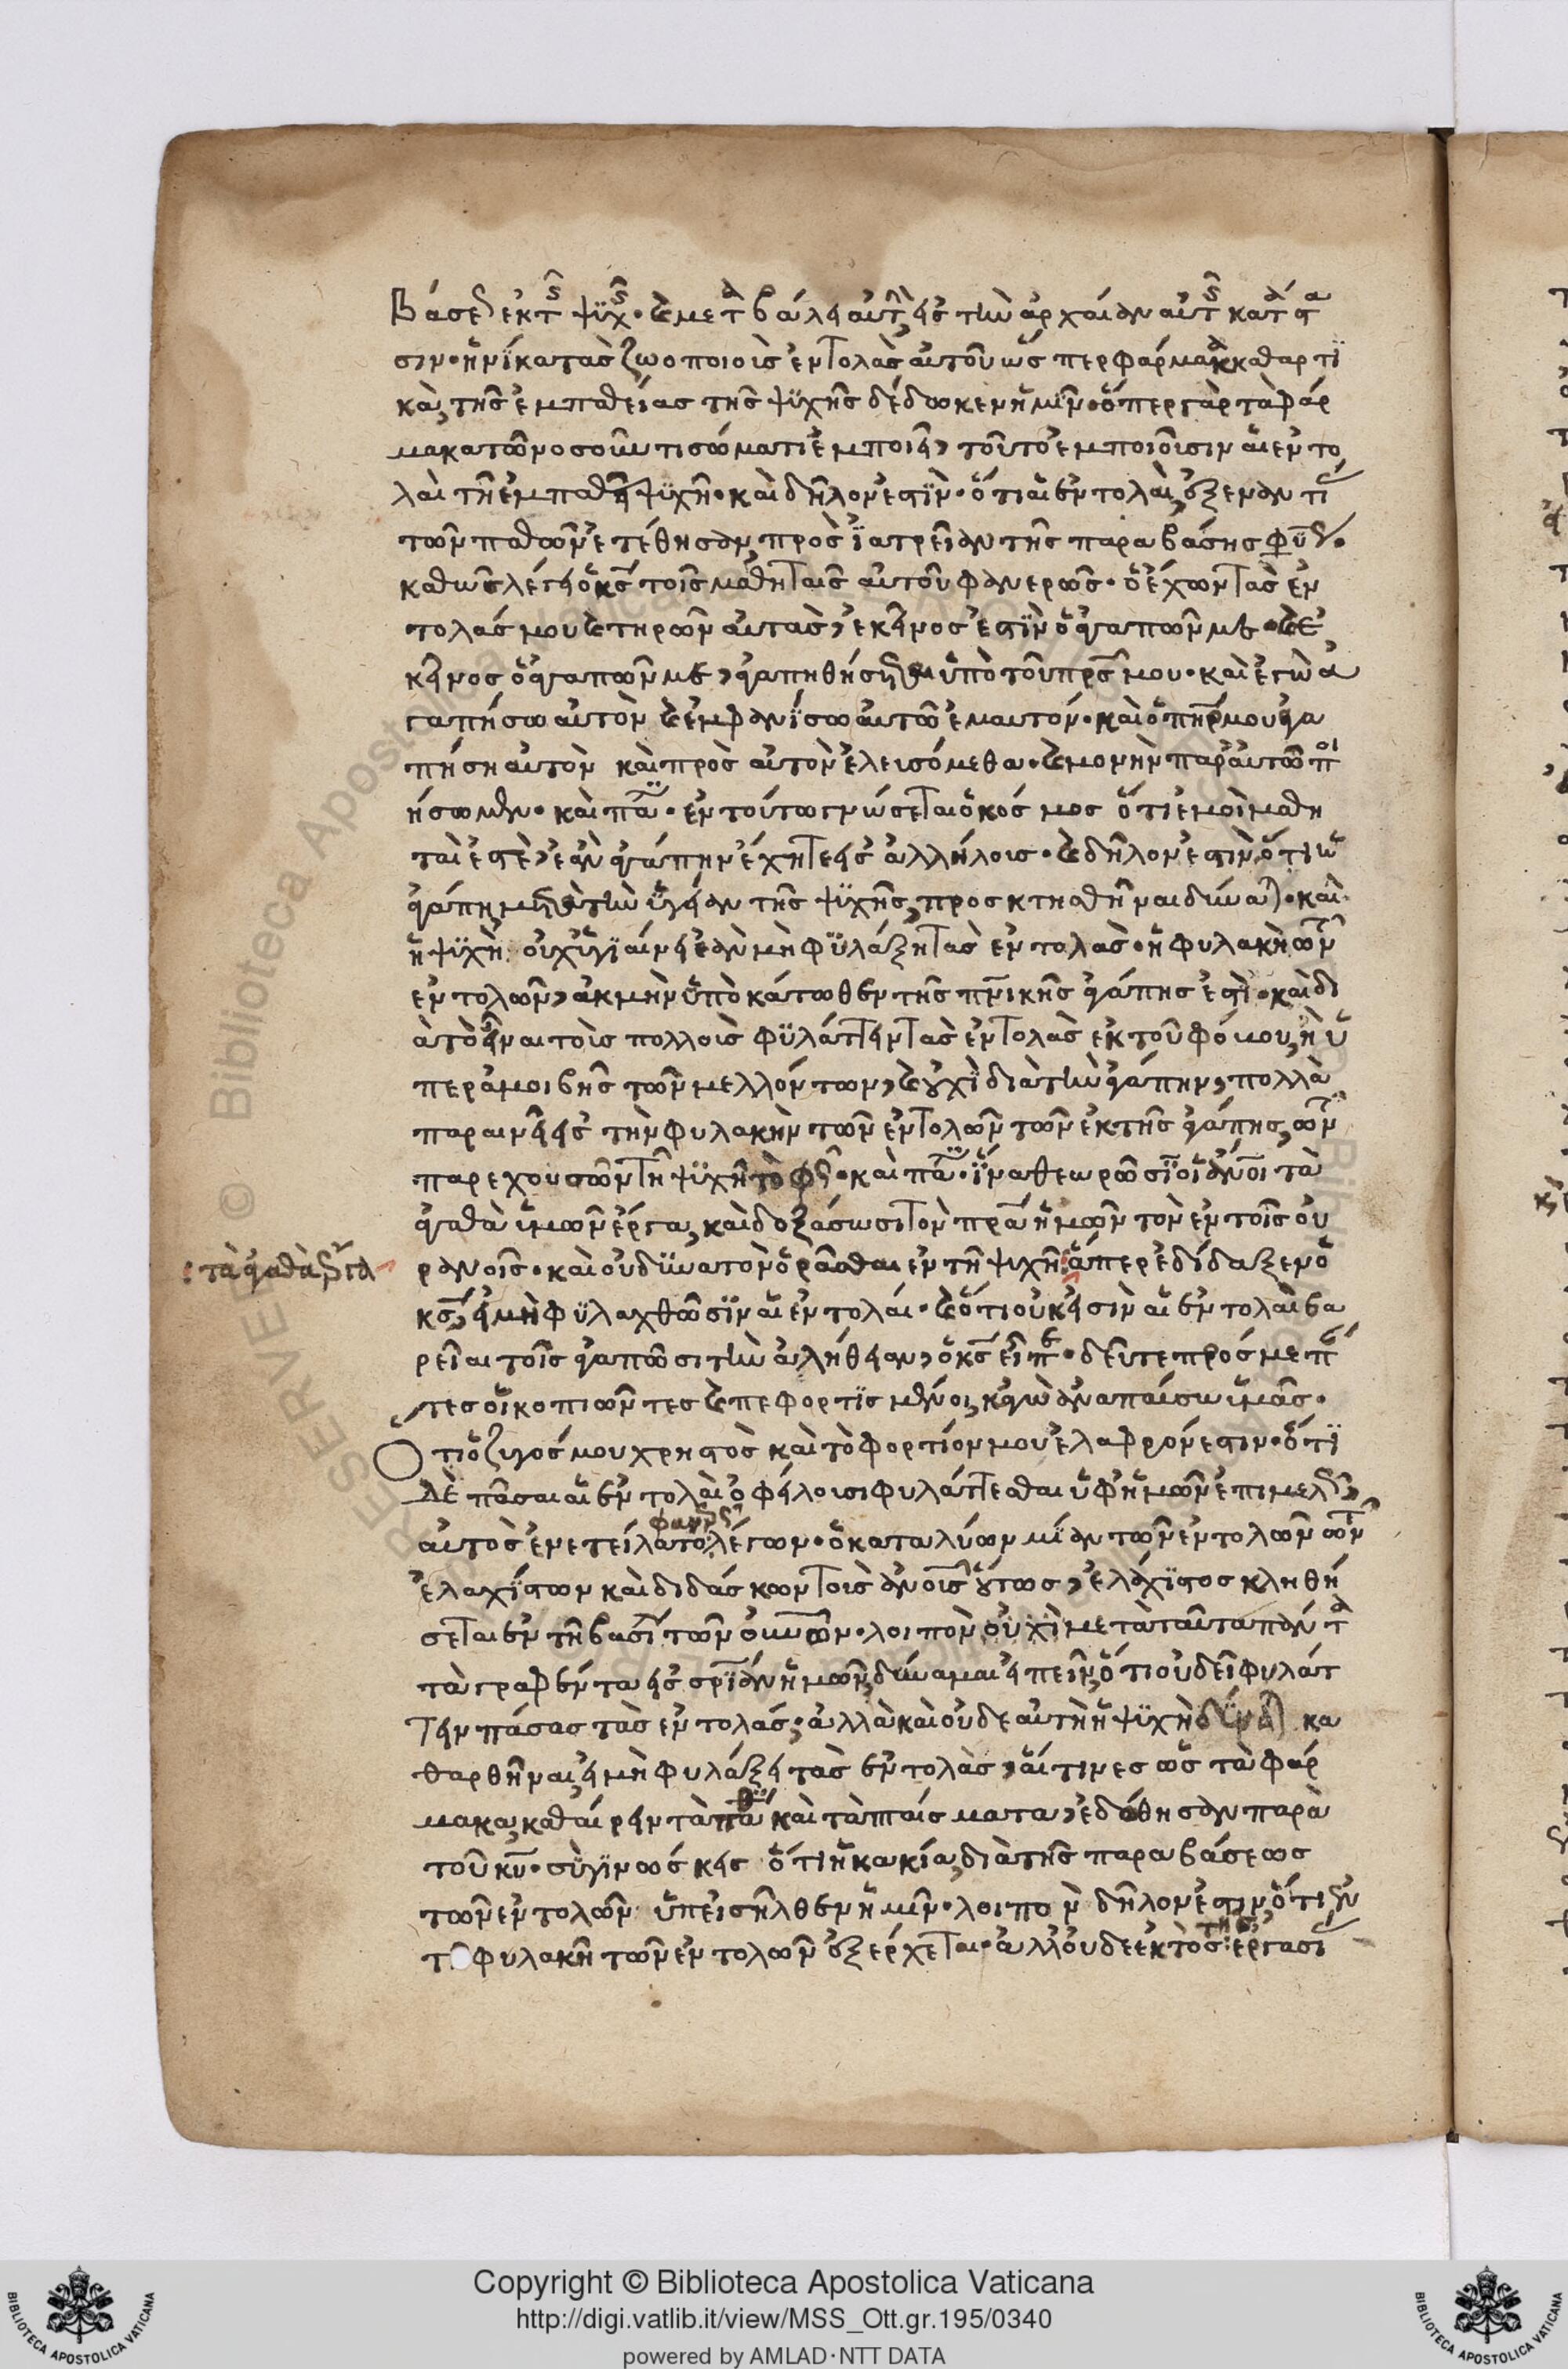 βάσεως ἐκ τῆς ψυχῆς· καὶ μεταβάλει αὐτὴν εἰς τὴν ἀρχαίαν αὐτῆς κατάστα
σιν· ἡνίκα τὰς ζωοποιοὺς ἐντολὰς αὐτοῦ ὥσπερ φάρμακα καθαρτι
κὰ, τῆς ἐμπαθείας τῆς ψυχῆς δέδωκεν ἡμῖν· ὅπερ γὰρ τὰ φάρ
μακα τῶ νοσοῦντι σώματι ἐμποιεῖ, τοῦτο ἐμποιοῦσιν αἱ ἐντο
λαὶ τῆ ἐμπαθεῖ ψυχῆ· καὶ δῆλον ἐστὶν· ὅτι αἱ ἐντολαὶ,
τῶν παθῶν ἐτέθησαν, πρὸς ἰατρείαν τῆς παραβάσης
καθὼς λέγει ὁ κς τοῖς μαθηταῖς αὐτοῦ φανερῶς· ὁ ἔχων τὰς ἐν
τολάς μου καὶ τηρῶν αὐτὰς, ἐκεῖνος ἐστὶν ὁ ἀγαπῶν με· καὶ ἐ
κεῖνος ὁ ἀγαπῶν με, ἀγαπηθήσεται ὑπὸ τοῦ πρς μου· καὶ ἐγὼ ἀ
γαπήσω αὐτὸν καὶ ἐμφανίσω αὐτῶ ἐμαυτόν· καὶ ὁ πηρ μου ἀγα
πήση αὐτὸν καὶ πρὸς αὐτὸν ἐλευσόμεθα· καὶ μονὴν παρ' αὐτῶ ποι
ήσωμεν· καὶ πά· ἐν τούτω γνώσεται ὁ κόσμος ὅτι ἐμοὶ μαθη
ταὶ ἐστὲ, ἐὰν ἀγάπην ἔχητε εἰς ἀλλήλοις· καὶ δῆλον ἐστὶν, ὅτι ἡ
ἀγάπη μετὰ τὴν ὑγείαν τῆς ψυχῆς, προσκτηθῆναι δύναται· καὶ
ἡ ψυχὴ οὐχ ὑγιαίνει ἐὰν μὴ φυλάξη τὰς ἐντολὰς· ἡ φυλακὴ τῶν
ἐντολῶν, ἀκμὴν ὑποκάτωθεν τῆς πνικῆς ἀγάπης ἐστὶ· καὶ δι
ὰ τὸ εἶναι τοὺς πολλοὺς φυλάττειν τὰς ἐντολὰς ἐκ τοῦ φόβου, ἢ ὑ
περ ἀμοιβῆς τῶν μελλόντων, καὶ οὐχὶ διὰ τὴν ἀγάπην, πολλὰ
παραινεῖ εἰς τὴν φυλακὴν τῶν ἐντολῶν τῶν ἐκ τῆς ἀγάπης, τῶν
παρεχουσῶν τῆ ψυχῆ τὸ φῶς· καὶ πά· ἵνα θεωρῶσιν οἱ ἄνοι τὰ
ἀγαθὰ ὑμῶν ἔργα, καὶ δοξάσωσι τὸν πρα ἡμῶν τὸν ἐν τοῖς οὐ
: τὰ ἀγαθὰ
ρανοῖς· καὶ οὐ δυνατὸν ὁρᾶσθαι ἐν τῆ ψυχῆ: ἅπερ ἐδίδαξεν ὁ
κς, εἰ μὴ φυλαχθῶσιν αἱ ἐντολαί· καὶ ὅτι οὐκ εἰσὶν αἱ ἐντολαὶ βα
ρεῖαι τοῖς ἀγαπῶσι τὴν ἀλήθειαν, ὁ κς εἶπε· δεῦτε πρός με πάν
τες οἱ κοπιῶντες καὶ πεφορτισμένοι, κἀγὼ ἀναπαύσω ὑμᾶς·
Ὅτι ὁ ζυγός μου χρηστὸς καὶ τὸ φορτίον μου ἐλαφρόν ἐστιν· ὅτι
δὲ πᾶσαι αἱ ἐντολαὶ ὀφείλουσι φυλάττεσθαι ὑφ' ἡμῶν ἐπιμελῶς,
φανερῶς
αὐτὸς ἐνετείλατο, λέγων· ὁ καταλύων μίαν τῶν ἐντολῶν τῶν
ἐλαχίστων καὶ διδάσκων τοὺς ἄνους οὕτως, ἐλάχιστος κληθή
σεται ἐν τῆ βασι τῶν οὐνῶν· λοιπὸν οὐχὶ μετὰ ταῦτα πάντα
τὰ γραφέντα εἰς σρίαν ἡμῶν, δύναμαι εἰπεῖν, ὅτι οὐ δεῖ φυλάτ
τειν πάσας τὰς ἐντολάς; ἀλλὰ καὶ οὐδὲ αὐτὴ ἡ ψυχὴ δύναται κα
θαρθῆναι, εἰ μὴ φυλάξει τὰς ἐντολὰς, αἵτινες ὡς τὰ φάρ
μακα, καθαίρειν τὰ πάθη καὶ τὰ πταίσματα, ἐδόθησαν παρὰ
τοῦ κυ· σὺ γινώσκεις ὅτι ἡ κακία, διὰ τῆς παραβάσεως
τῶν ἐντολῶν ὑπεισῆλθεν ἡμῖν· λοιπὸν δῆλον ἐστιν, ὅτι ἐν
τῆ φυλακῆ τῶν ἐντολῶν ἐξέρχεται· ἀλλ' οὐδὲ ἐκτὸς τῆς ἐργασί